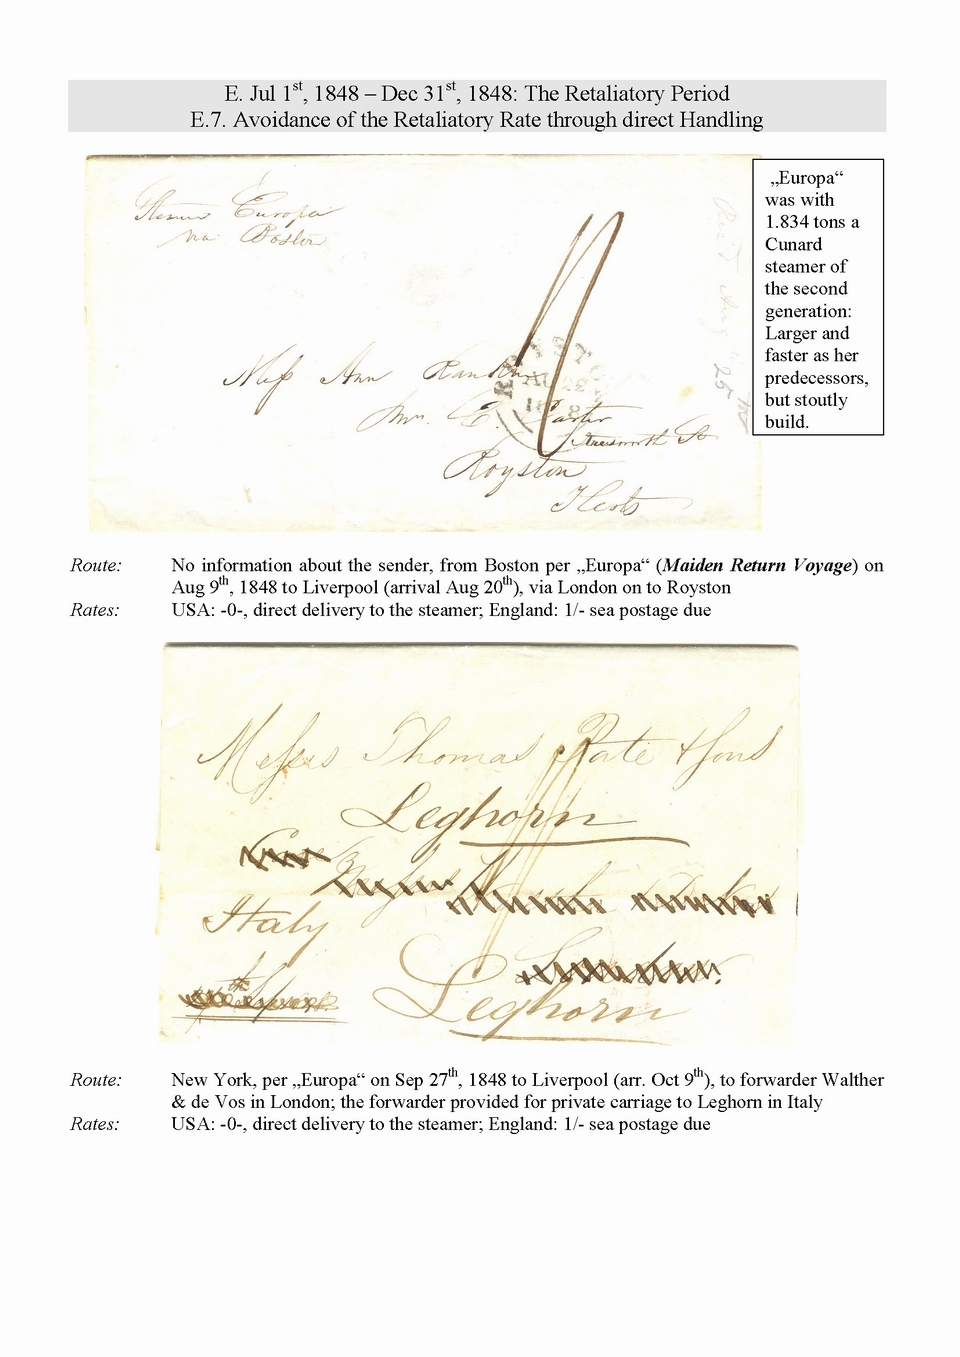 E. Jul 1st, 1848 – Dec 31st, 1848: The Retaliatory Period
E.7. Avoidance of the Retaliatory Rate through direct Handling
Steamer Europa
via Boston
Miss Ann
Royston
Herts
Aug 25th
„Europa“
was with
1.834 tons a
Cunard
steamer of
the second
generation:
Larger and
faster as her
predecessors,
but stoutly
build.
Route: No information about the sender, from Boston per „Europa“ (Maiden Return Voyage) on
Aug 9th, 1848 to Liverpool (arrival Aug 20th), via London on to Royston
Rates: USA: -0-, direct delivery to the steamer; England: 1/- sea postage due
Messrs Thomas Pate & Sons
Leghorn
Italy
Leghorn
Route: New York, per „Europa“ on Sep 27th, 1848 to Liverpool (arr. Oct 9th), to forwarder Walther
& de Vos in London; the forwarder provided for private carriage to Leghorn in Italy
Rates: USA: -0-, direct delivery to the steamer; England: 1/- sea postage due